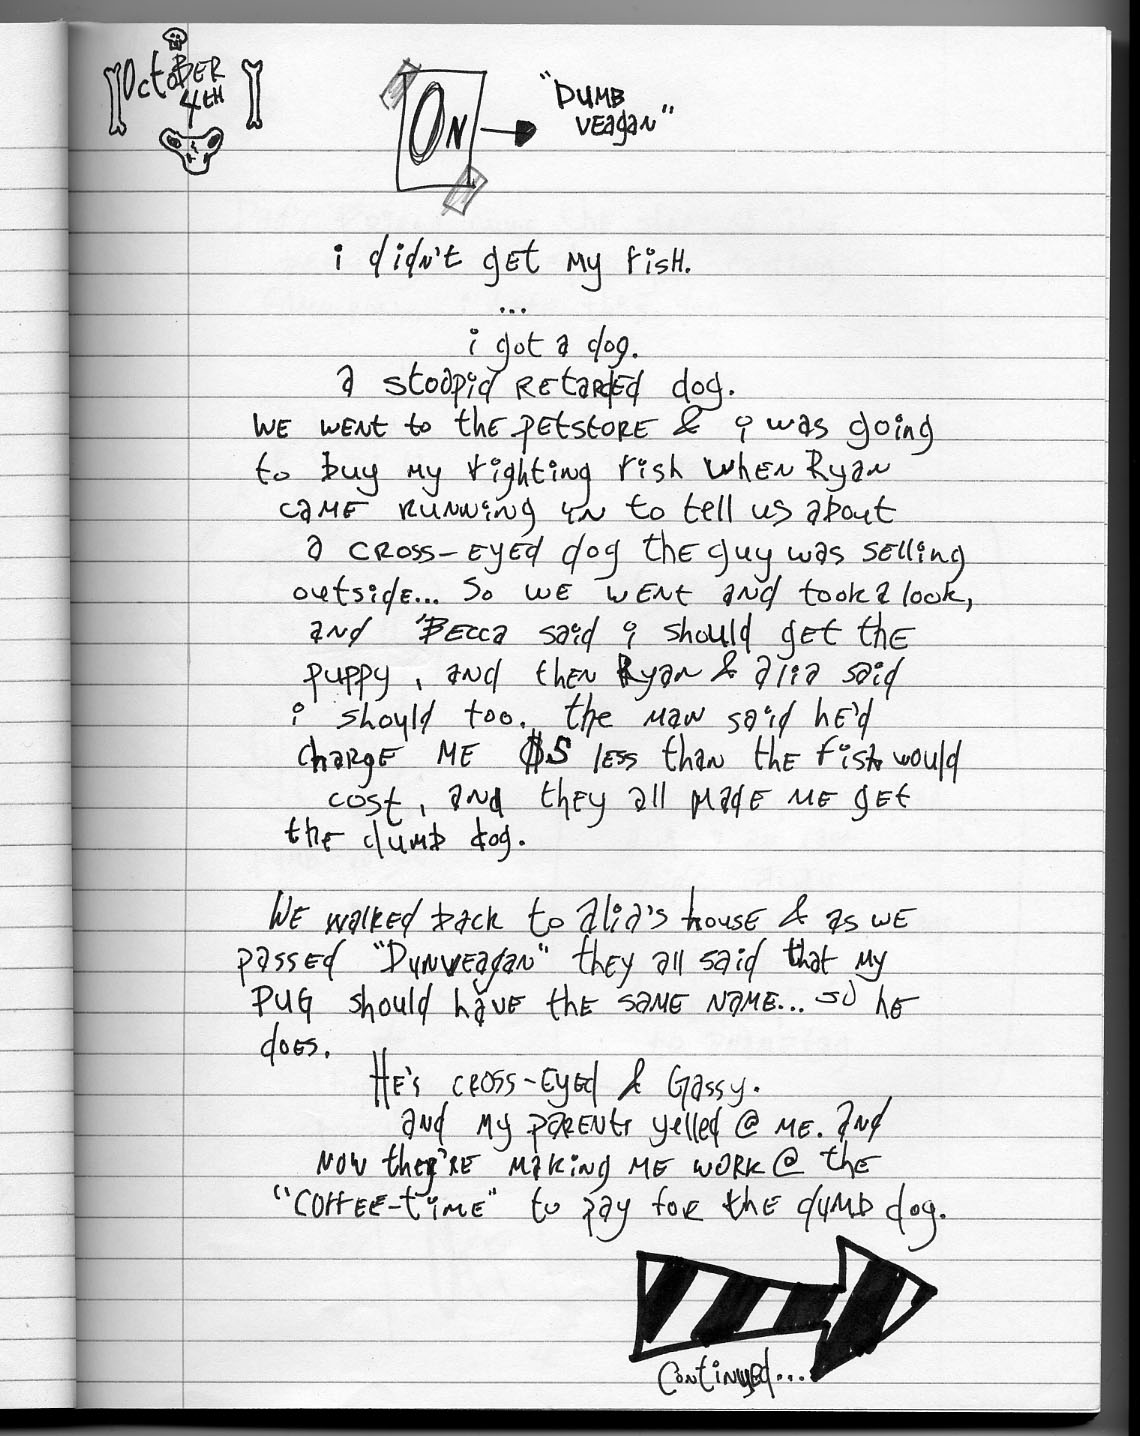 OctoBER
4tH
ON
"DUMB
VEagaN"
i didN't gEt My fisH.
...
i got a dog.
a stoopid REtardEd dog.
WE WENT to thE pEtstoRE & i was going
to buy My fighting fish WHEN Ryan
caME RUNNiNg iN to tell us about
a CROSS-EyEd dog thE guy was SElling
outsidE... So WE WENT and took a look,
aNd BEcca said i should gEt thE
puppy, aNd thEN Ryan & alia said
i should too. thE MaN said hE'd
chaRgE ME $5 lEss thaN thE fish would
cost, and thEy all MadE ME gEt
thE duMb dog.
WE walkEd back to alia's housE & as WE
passEd "DuNVEagan" thEy all said that My
PUG should havE thE saME NaME... so hE
doEs.
HE's CROSS-EyEd & Gassy.
aNd My paRENts yEllEd @ ME. aNd
NOW thEy'RE MakiNg ME WORK @ thE
"COffEE-tiME" to pay foR thE duMb dog.
CoNtiNuEd...